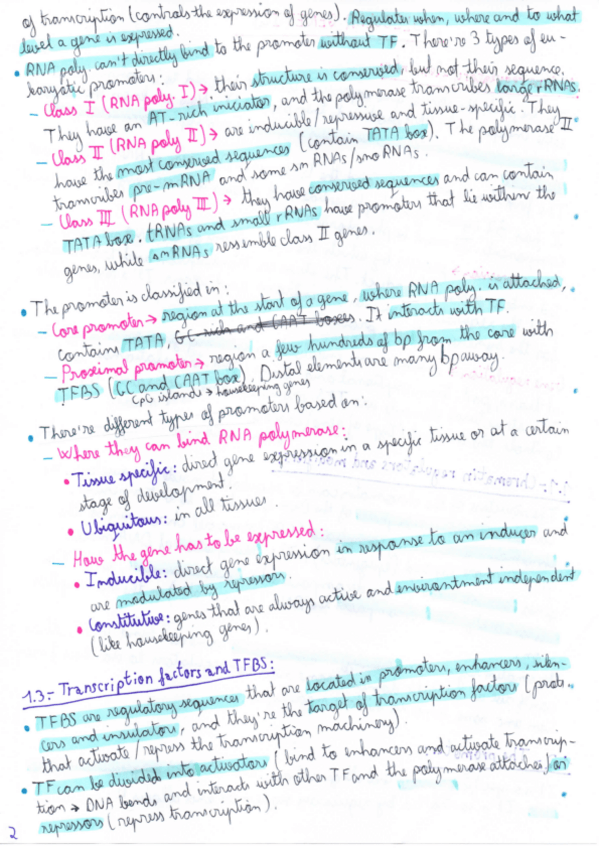 of transcription (controls the expression of genes). Regulates when, where and to what
level a gene is expressed.
• RNA poly. can't directly bind to the promoter without TF. There're 3 types of eu-
karyotic promoters:
– Class I (RNA poly. I) → their structure is conserved, but not their sequence.
They have an AT-rich iniciator, and the polymerase transcribes large rRNAs.
– Class II (RNA poly II) → are inducible/repressive and tissue-specific. They
have the most conserved sequences (contain TATA box). The polymerase II
transcribes pre-mRNA and some snRNAs/snoRNAs.
– Class III (RNA poly III) → they have conserved sequences and can contain
TATA box. tRNAs and small rRNAs have promoters that lie within the
genes, while snRNAs ressemble class II genes.
• The promoter is classified in:
– Core promoter → region at the start of a gene, where RNA poly. is attached,
contains TATA, GC-rich and CAAT boxes. It interacts with TF.
– Proximal promoter → region a few hundreds of bp from the core with
TFBS (GC and CAAT box). Distal elements are many bp away.
CpG islands → housekeeping genes
• There're different types of promoters based on:
– Where they can bind RNA polymerase:
• Tissue specific: direct gene expression in a specific tissue or at a certain
stage of development.
• Ubiquitous: in all tissues.
– How the gene has to be expressed:
• Inducible: direct gene expression in response to an inducer and
are modulated by repressors.
• Constitutive: genes that are always active and enviorntment independent
(like housekeeping genes).
1.3.- Transcription factors and TFBS:
• TFBS are regulatory sequences that are located in promoters, enhancers, silen-
cers and insulators, and they're the target of transcription factors (prots.
that activate/repress the transcription machinery).
• TF can be divided into activators (bind to enhancers and activate transcrip-
tion → DNA bends and interacts with other TF and the polymerase attaches) or
repressors (repress transcription).
2